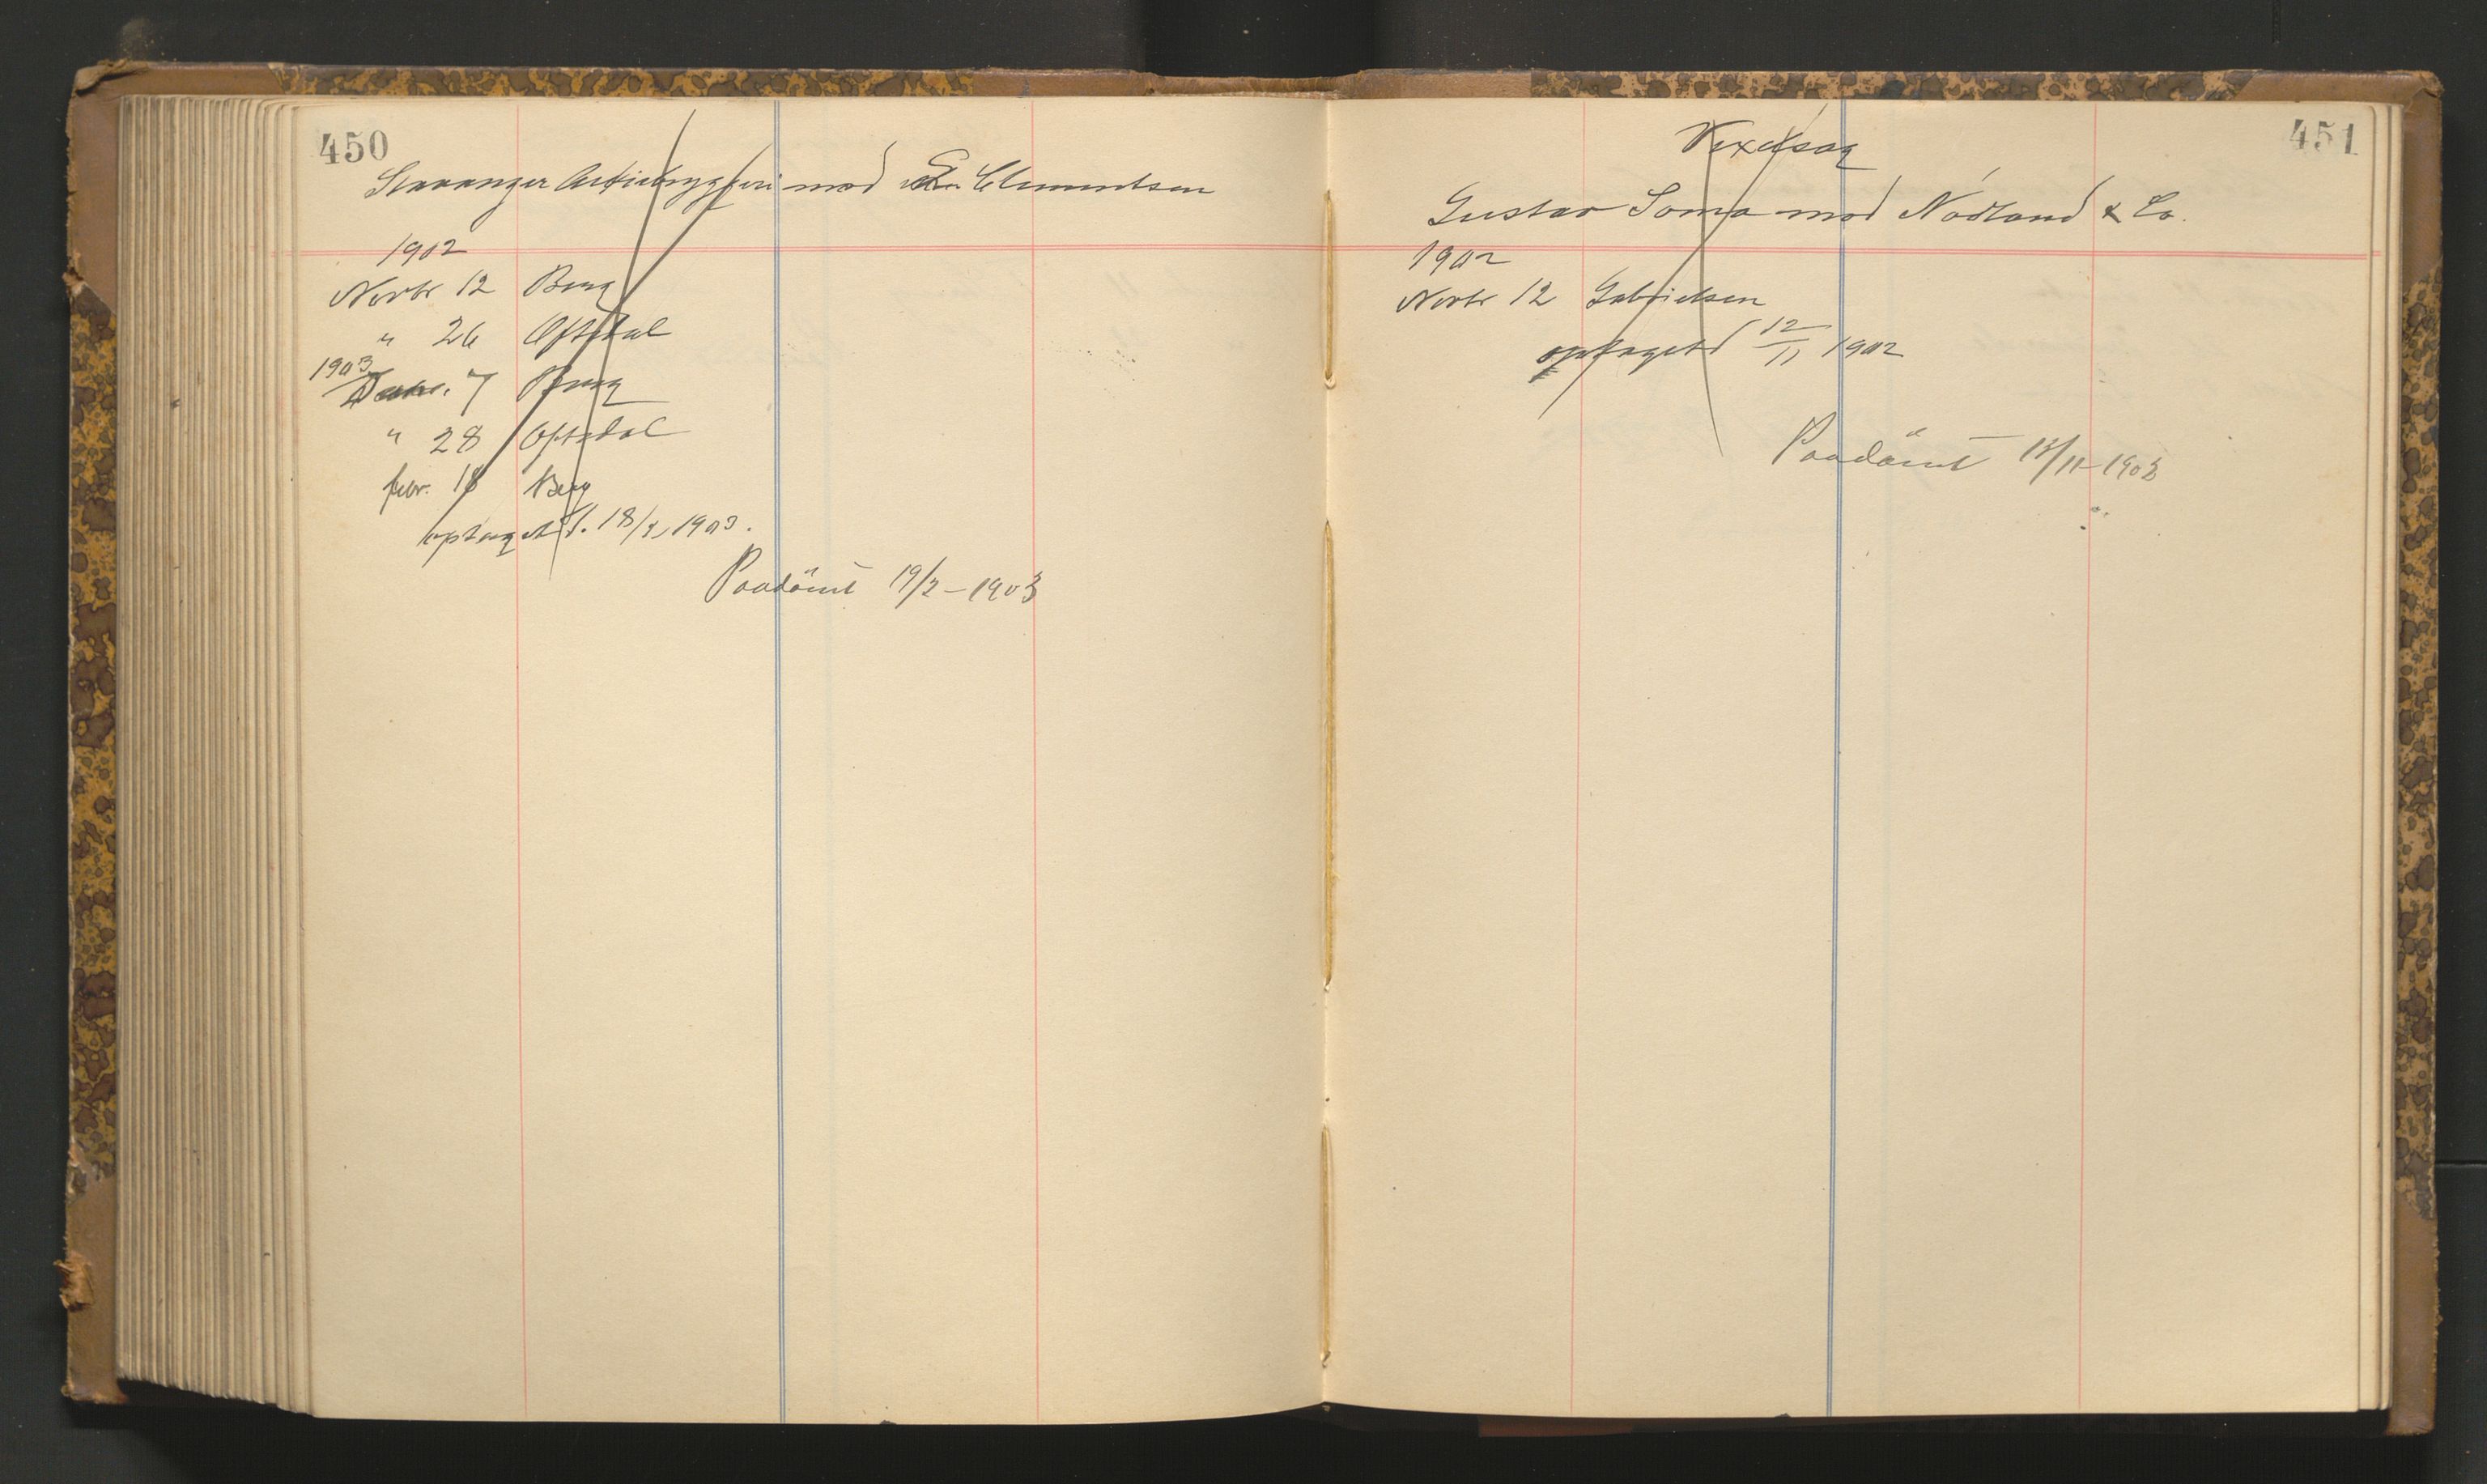 450
Stavanger Actiebryggeri mod Chr. Clementsen
1902
Novbr 12 Berg
" 26 Oftedal
1903
Janr. 7 Berg
" 28 Oftedal
febr. 18 Berg
optaget d. 18/2 1903.
Paadömt 19/2 - 1903
451
Vexelsag
Gustav Soma mod Nödland & Co.
1902
Novbr 12 Gabrielsen
optaget d 12/11 1902
Paadömt 13/11 - 1902